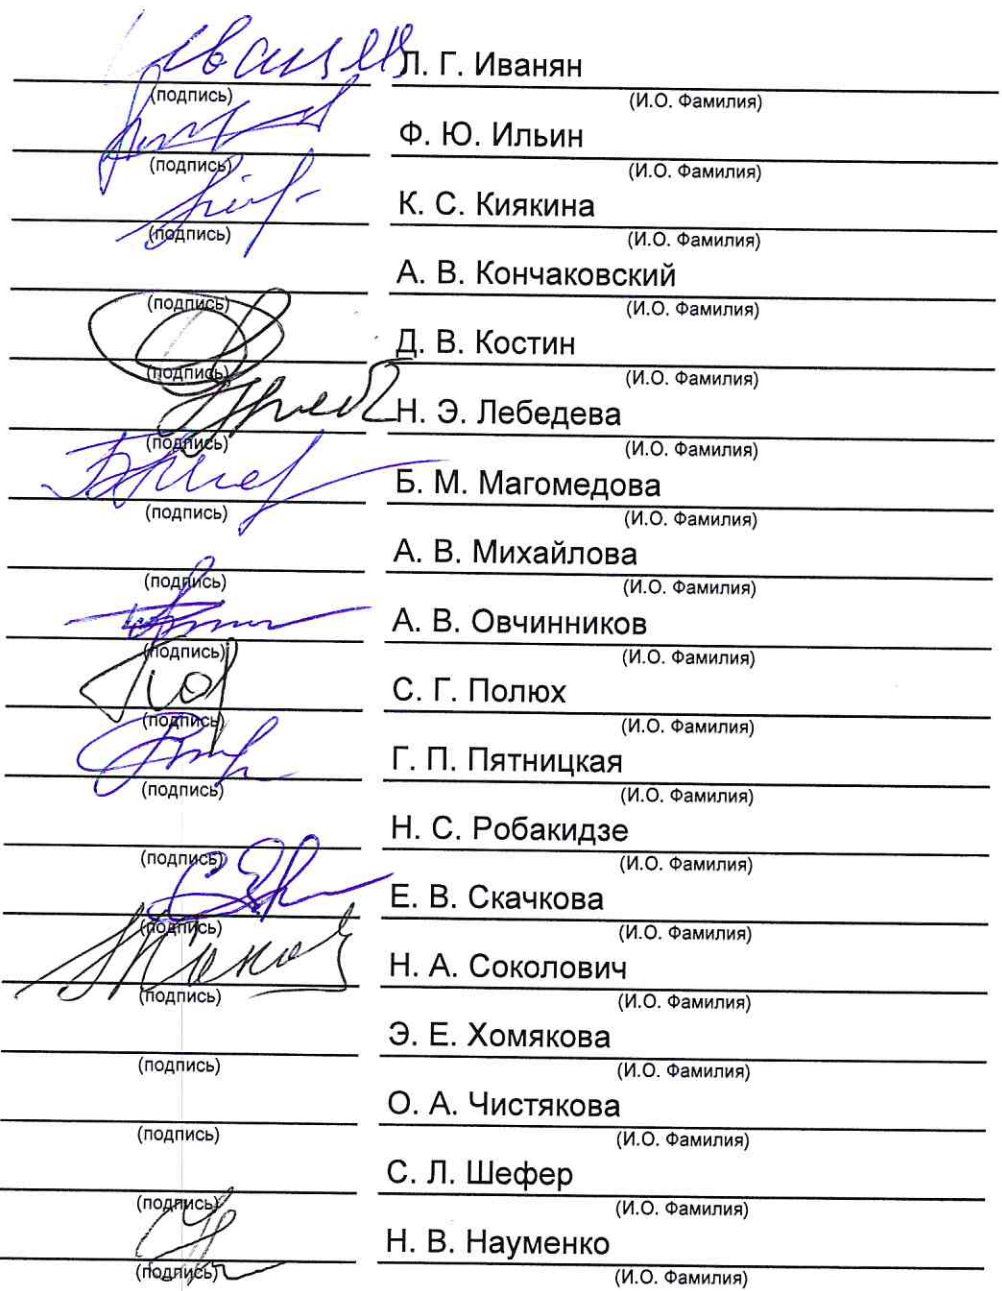 Л. Г. Иванян
(подпись) (И.О. Фамилия)
Ф. Ю. Ильин
(подпись) (И.О. Фамилия)
К. С. Киякина
(подпись) (И.О. Фамилия)
А. В. Кончаковский
(подпись) (И.О. Фамилия)
Д. В. Костин
(подпись) (И.О. Фамилия)
Н. Э. Лебедева
(подпись) (И.О. Фамилия)
Б. М. Магомедова
(подпись) (И.О. Фамилия)
А. В. Михайлова
(подпись) (И.О. Фамилия)
А. В. Овчинников
(подпись) (И.О. Фамилия)
С. Г. Полюх
(подпись) (И.О. Фамилия)
Г. П. Пятницкая
(подпись) (И.О. Фамилия)
Н. С. Робакидзе
(подпись) (И.О. Фамилия)
Е. В. Скачкова
(подпись) (И.О. Фамилия)
Н. А. Соколович
(подпись) (И.О. Фамилия)
Э. Е. Хомякова
(подпись) (И.О. Фамилия)
О. А. Чистякова
(подпись) (И.О. Фамилия)
С. Л. Шефер
(подпись) (И.О. Фамилия)
Н. В. Науменко
(подпись) (И.О. Фамилия)